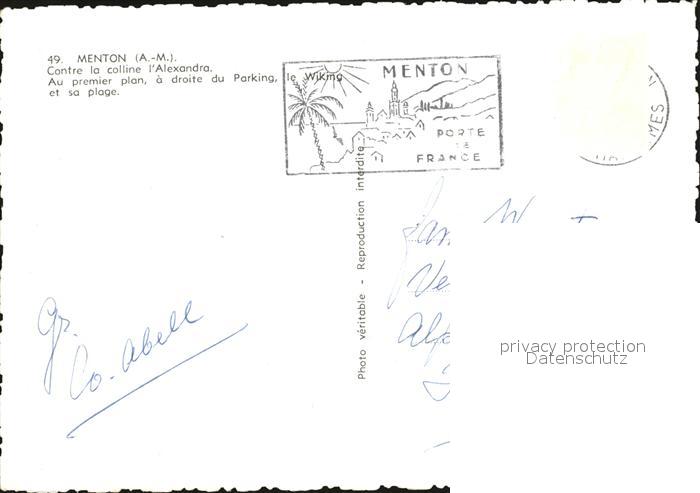 49. MENTON (A.-M.).
Contre la colline l'Alexandra.
Au premier plan, à droite du Parking, le Wiking
et sa plage.
MENTON
PORTE
DE
FRANCE
MES
Photo véritable - Reproduction interdite
W
Ve
Alp
gr.
Co. Abell
privacy protection
Datenschutz